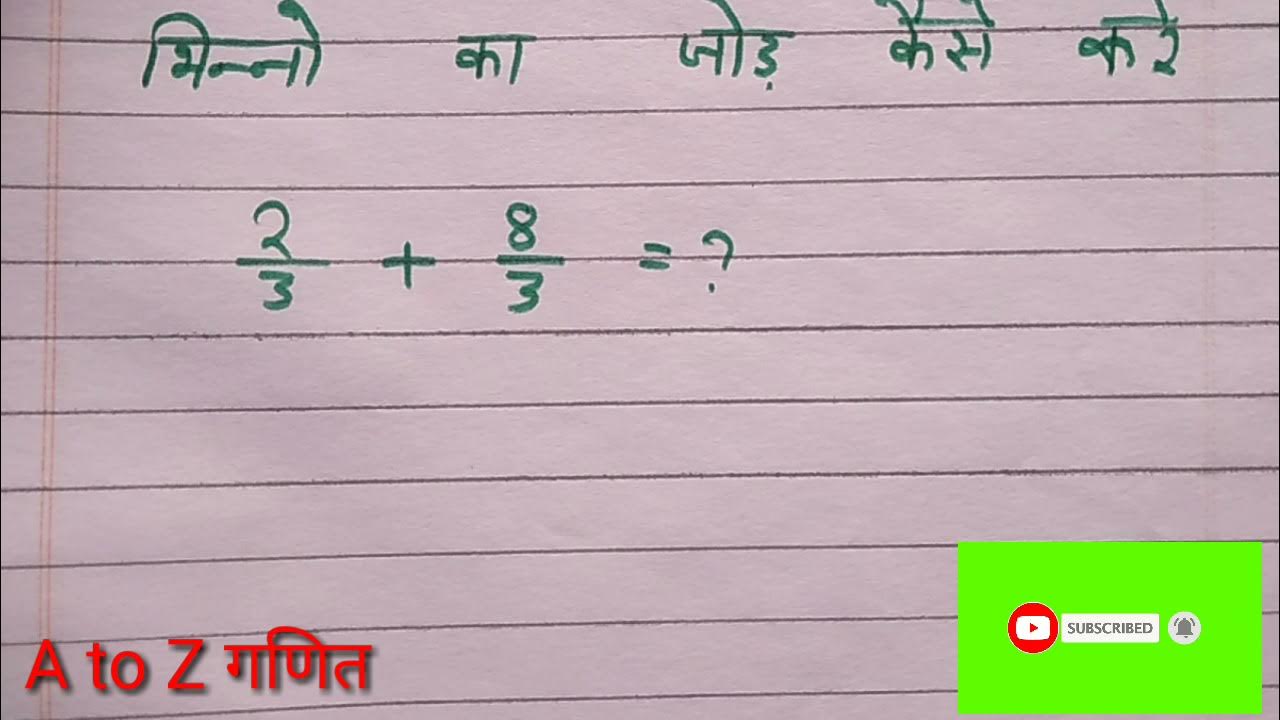 भिन्नो का जोड़ कैसे करे
2/3 + 8/3 = ?
A to Z गणित
SUBSCRIBED